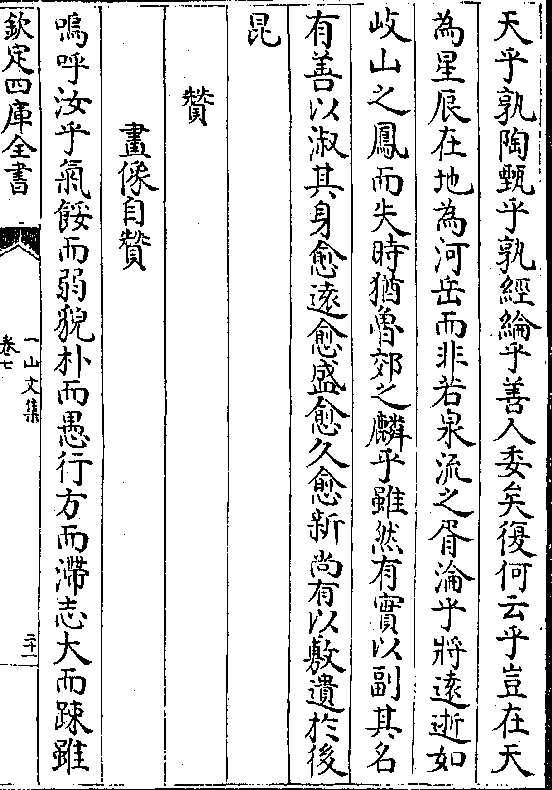 天乎孰陶甄乎孰經綸乎善人委矣復何云乎豈在天
為星辰在地為河岳而非若泉流之胥淪乎將遠逝如
岐山之鳳而失時猶魯郊之麟乎雖然有實以副其名
有善以淑其身愈遠愈盛愈久愈新尚有以敷遺於後
昆
贊
畫像自贊
嗚呼汝乎氣餒而弱貌朴而愚行方而滯志大而踈雖
欽定四庫全書
一山文集
卷七
二十一